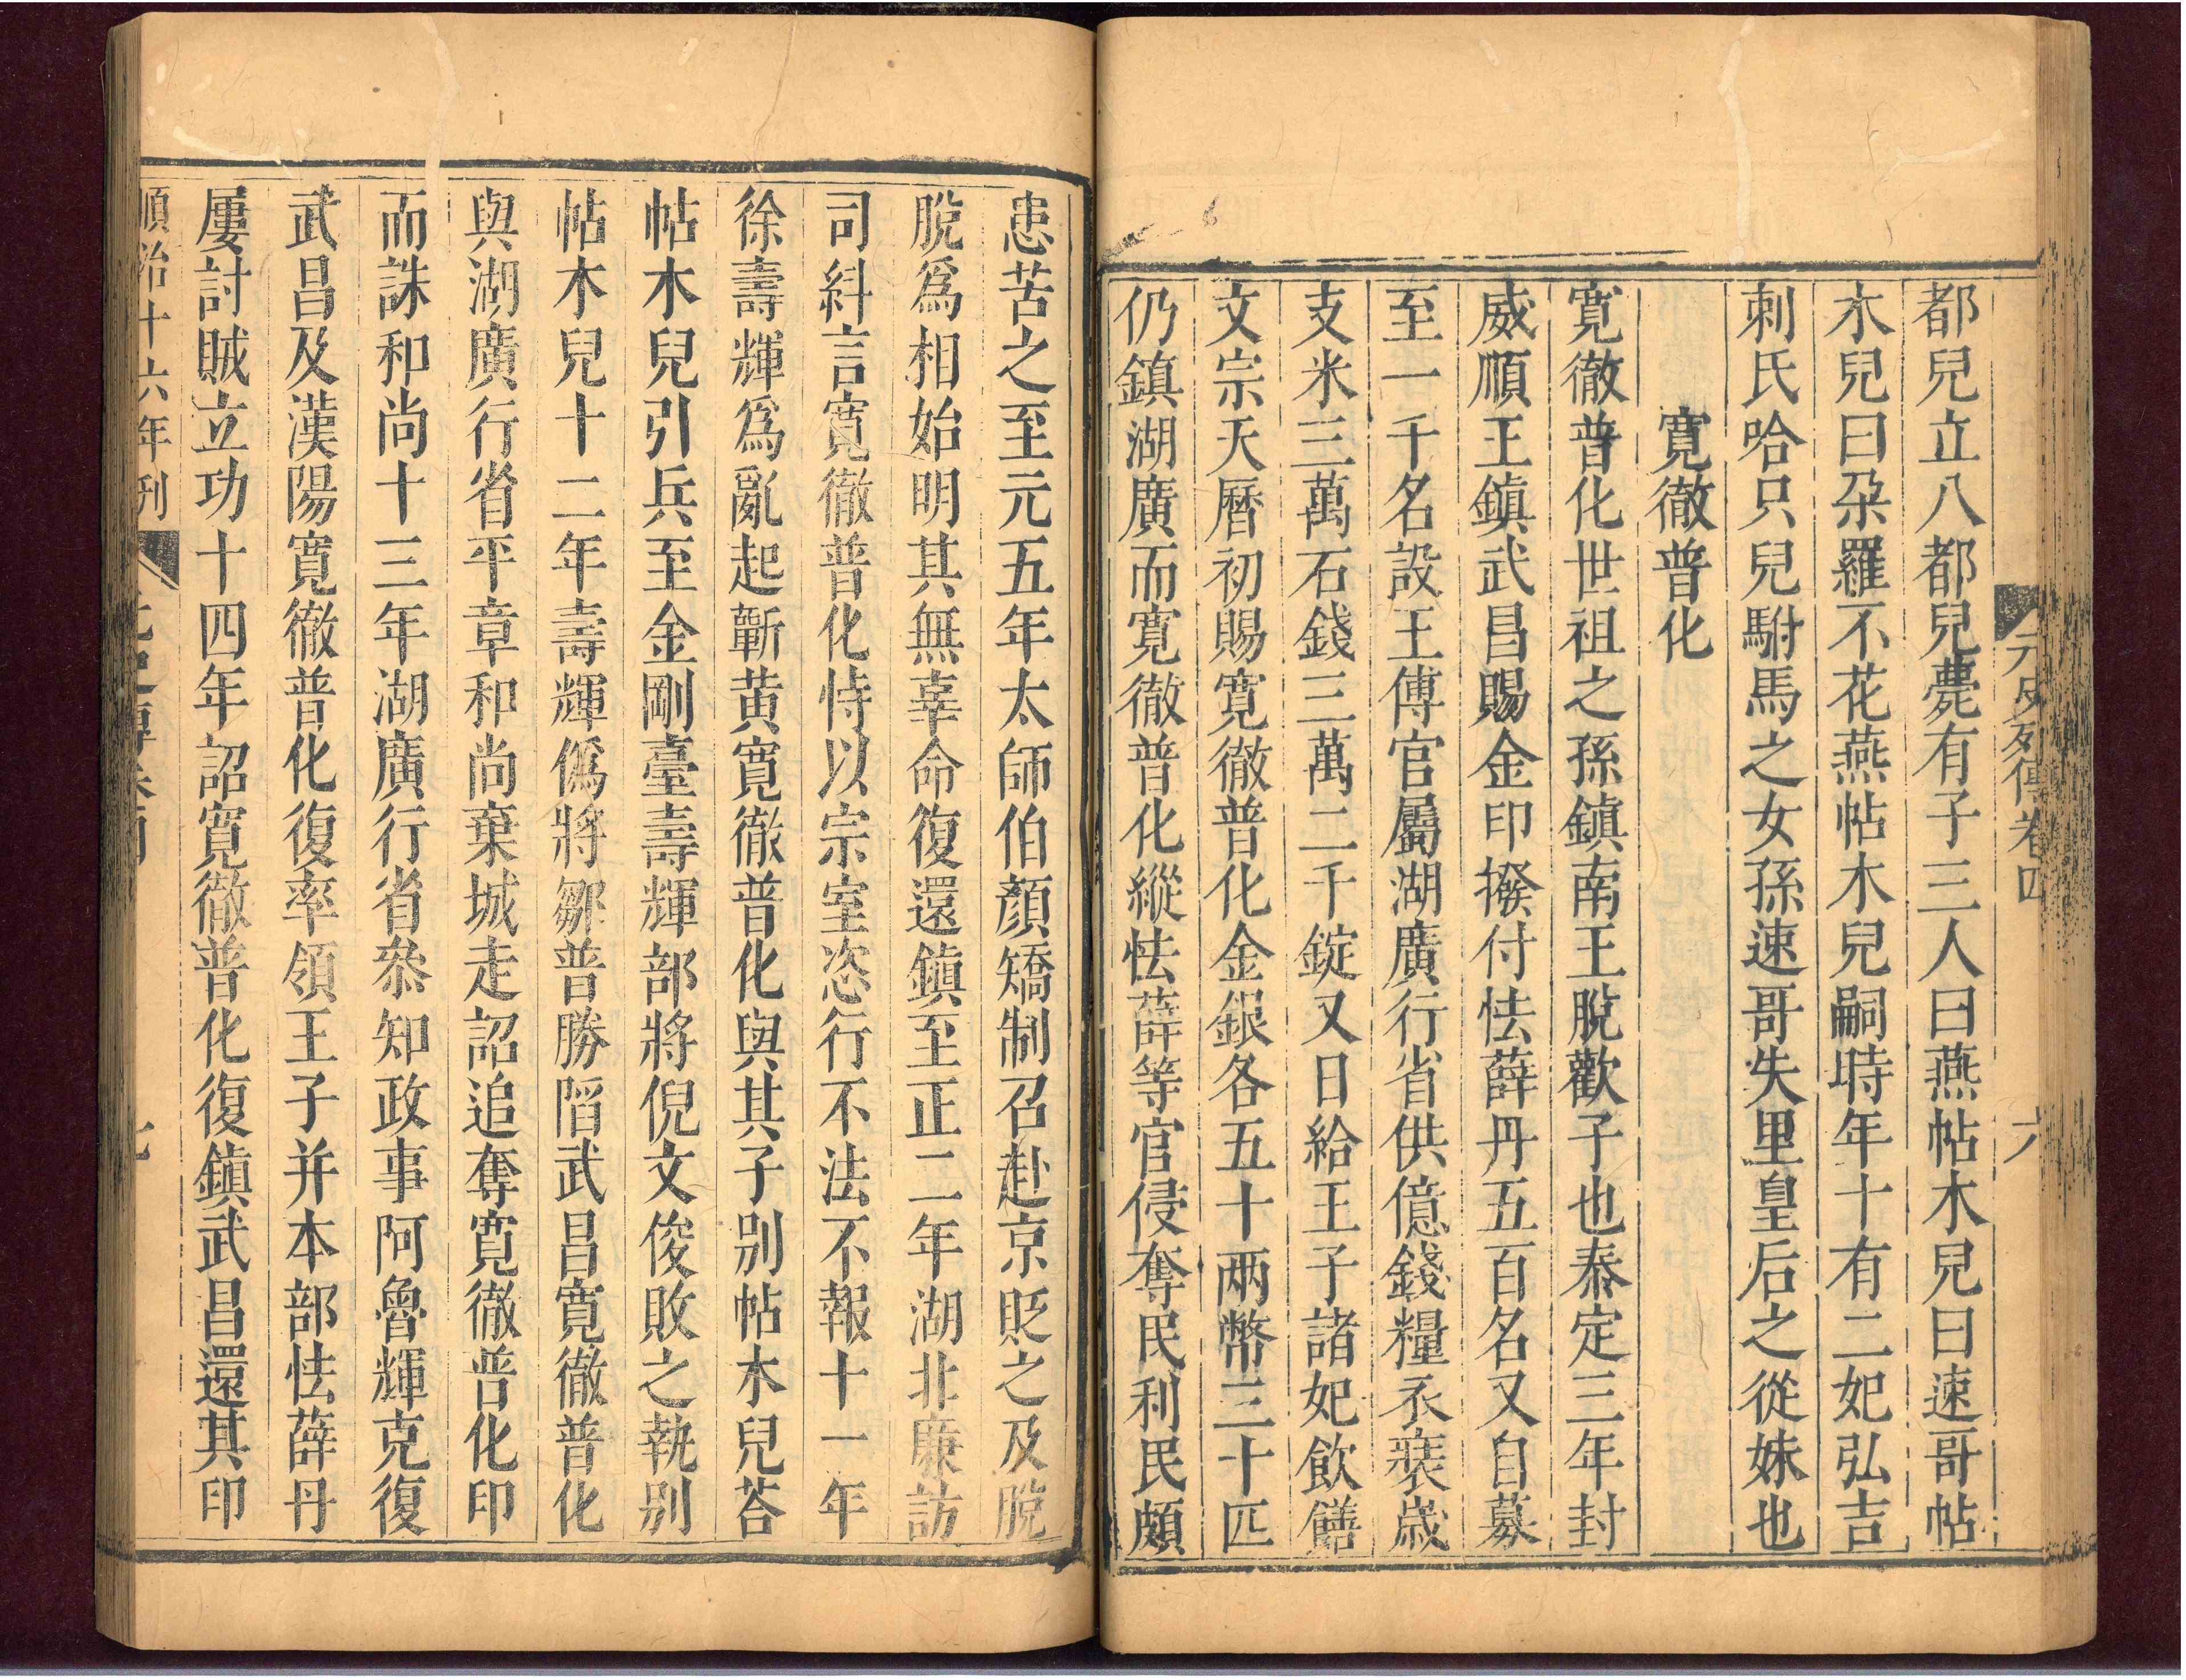 元史列傳卷四 六
都兒立八都兒薨有子三人曰燕帖木兒曰速哥帖
木兒曰朶羅不花燕帖木兒嗣時年十有二妃弘吉
剌氏哈只兒駙馬之女孫速哥失里皇后之從妹也
寬徹普化
寬徹普化世祖之孫鎮南王脫歡子也泰定三年封
威順王鎮武昌賜金印撥付怯薛丹五百名又自募
至一千名設王傅官屬湖廣行省供億錢糧衣裘歲
支米三萬石錢三萬二千錠又日給王子諸妃飲饍
文宗天曆初賜寬徹普化金銀各五十兩幣三十匹
仍鎮湖廣而寬徹普化縱怯薛等官侵奪民利民頗
患苦之至元五年太師伯顏矯制召赴京貶之及脫
脫爲相始明其無辜命復還鎮至正二年湖北廉訪
司糾言寬徹普化恃以宗室恣行不法不報十一年
徐壽輝爲亂起蘄黃寬徹普化與其子别帖木兒荅
帖木兒引兵至金剛臺壽輝部將倪文俊敗之執别
帖木兒十二年壽輝僞將鄒普勝陷武昌寬徹普化
與湖廣行省平章和尚棄城走詔追奪寬徹普化印
而誅和尚十三年湖廣行省叅知政事阿魯輝克復
武昌及漢陽寬徹普化復率領王子并本部怯薛丹
屢討賊立功十四年詔寬徹普化復鎮武昌還其印
順治十六年刊 七